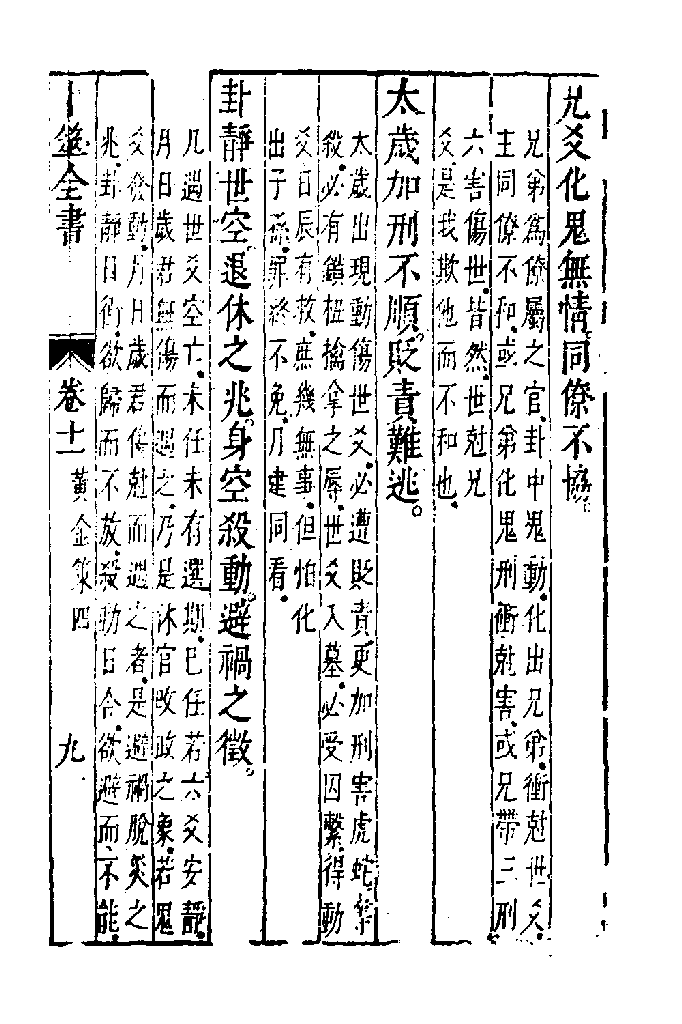 兄爻化鬼無情同僚不協。
兄弟為僚屬之官卦中鬼動化出兄弟衝尅世爻
主同僚不和或兄弟化鬼刑衝尅害或兄帶三刑
六害傷世皆然世尅兄
爻是我欺他而不和也
太歲加刑不順貶責難逃。
太歲出現動傷世爻必遭貶責更加刑害虎蛇等
殺必有鎖杻擒拿之辱世爻入墓必受囚繫得動
爻日辰有救庶幾無事但怕化
出子孫罪終不免月建同看
卦靜世空退休之兆身空殺動避禍之徵。
凡遇世爻空亡未任未有選期已任若六爻安靜
月日歲君無傷而遇之乃是休官改政之象若鬼
爻發動月日歲君傷尅而遇之者是避禍脫災之
兆卦靜日衝欲歸而不放殺動日合欲避而不能
卜筮全書
卷十一
黃金策四
九